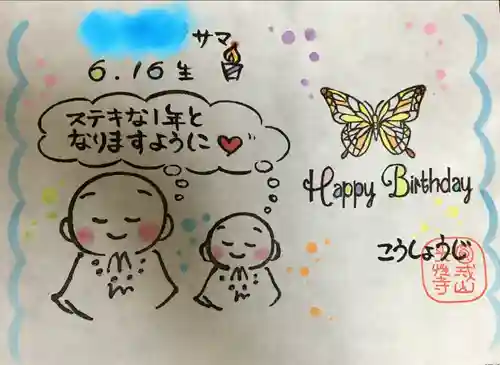 サマ
6.16生
ステキな1年と
なりますように
Happy Birthday
こうしょうじ